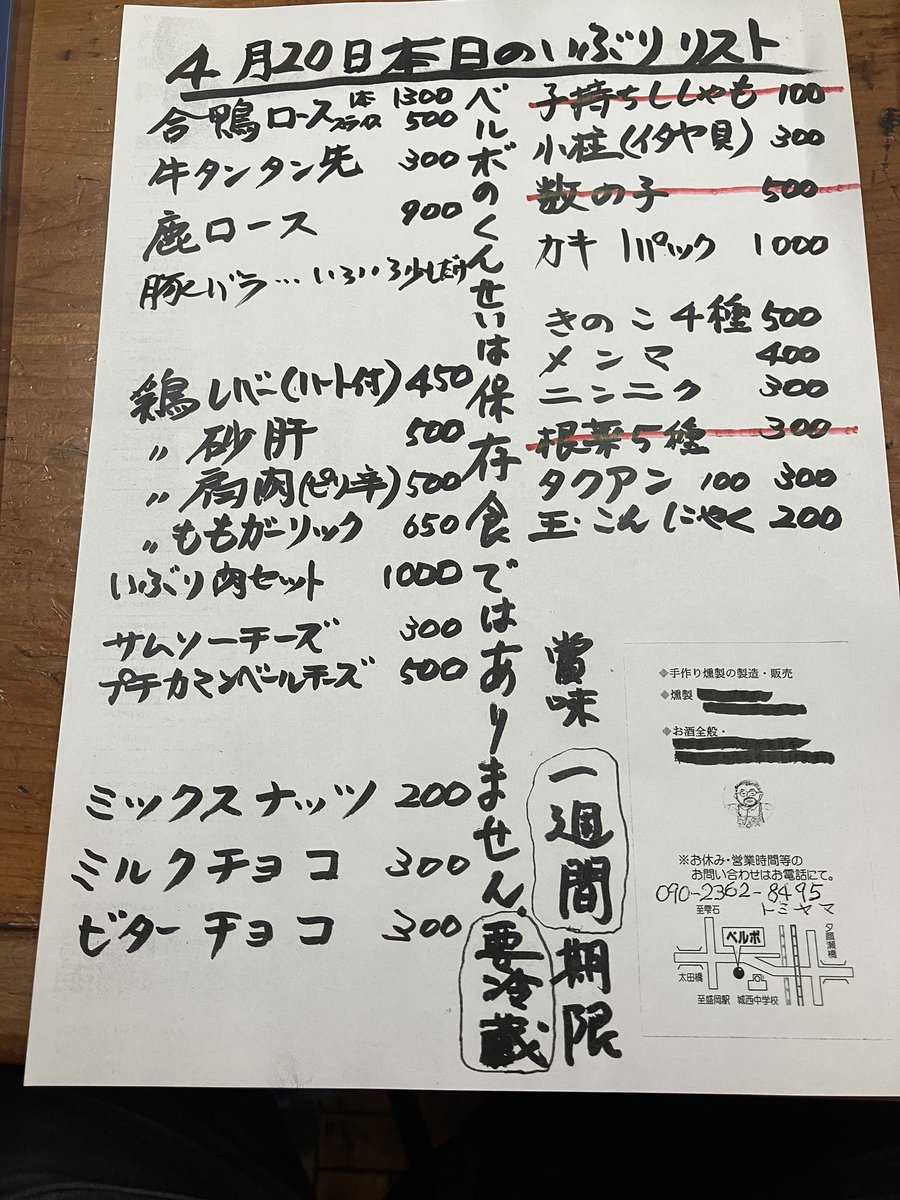 4月20日本日のいぶりリスト
合鴨ロース 1本 1300
スライス 500
牛タンタン先 300
鹿ロース 900
豚バラ…いろいろ少しだけ
鶏レバー(ハート付) 450
〃 砂肝 500
〃 肩肉(ピリ辛) 500
〃 ももガーリック 650
いぶり肉セット 1000
サムソーチーズ 300
プチカマンベールチーズ 500
ミックスナッツ 200
ミルクチョコ 300
ビターチョコ 300
ベルボのくんせいは保存食ではありません。要冷蔵
子持ちししゃも 100
小柱(イタヤ貝) 300
数の子 500
カキ 1パック 1000
きのこ4種 500
メンマ 400
ニンニク 300
根菜5種 300
タクアン 100 300
玉こんにゃく 200
賞味一週間期限
◆手作り燻製の製造・販売
◆燻製
◆お酒全般・
※お休み・営業時間等の
お問い合わせはお電話にて。
090-2362-8495
トミヤマ
至雫石
ベルボ
夕顔瀬橋
太田橋
至盛岡駅
城西中学校